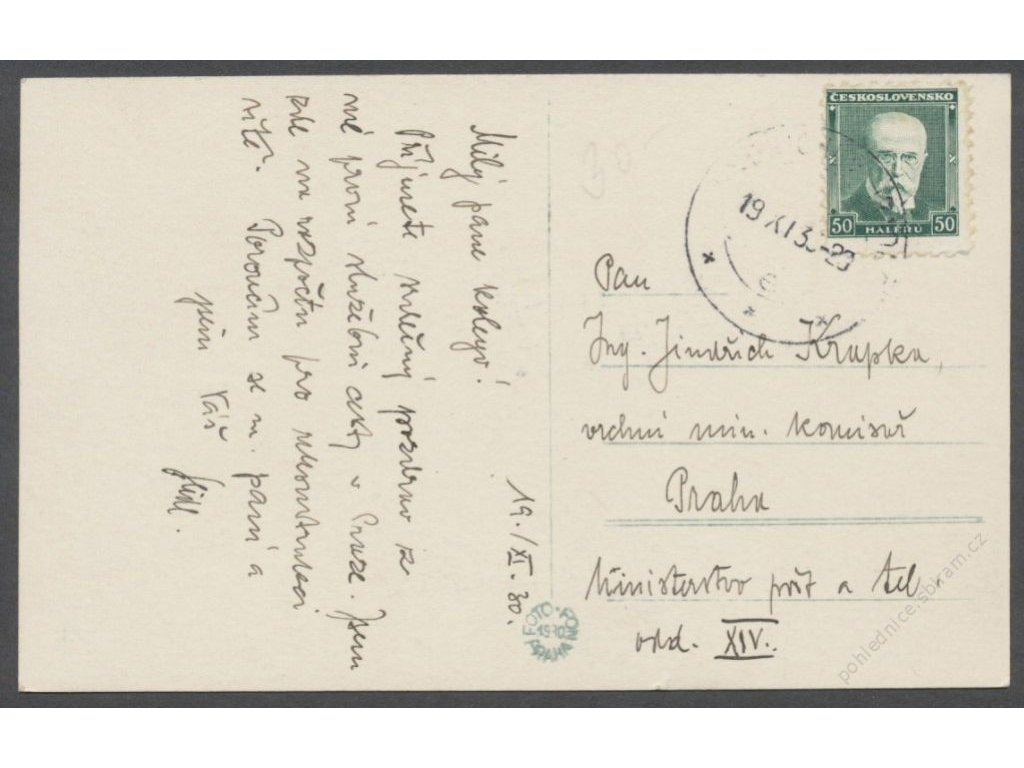 19./XI.30.
Milý pane kolego!
Přijmete srdečný pozdrav z
mé první služební cesty v Praze. Jsem
zde na rozpočtu pro rekonstrukci
sítě. Poroučím se m. paní a
jsem Váš
ČESKOSLOVENSKO
50 HALÉŘŮ 50
19 XI 3
Pan
Ing. Jindřich Krupka,
vrchní min. komisař
Praha
Ministerstvo pošt a tel.
odd. XIV.
FOTO-FON
1930
PRAHA
pohlednice.sbiram.cz